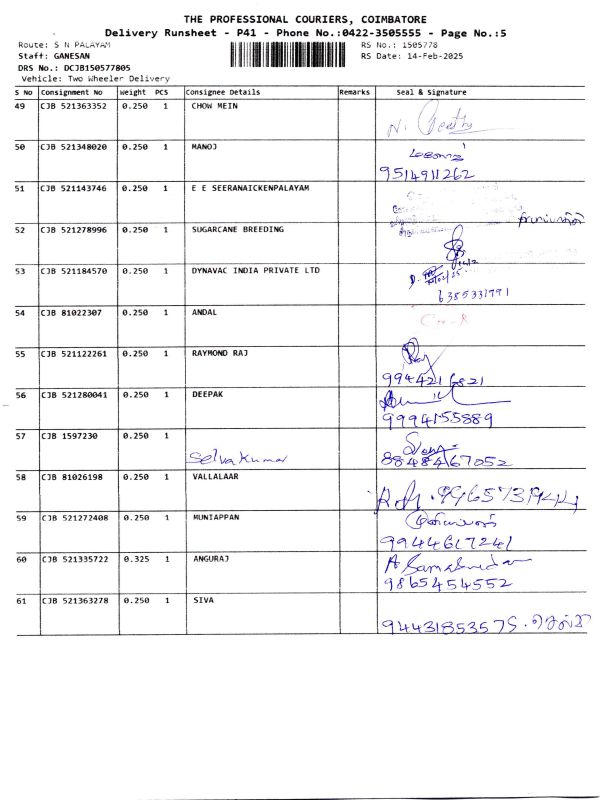 THE PROFESSIONAL COURIERS, COIMBATORE
Delivery Runsheet - P41 - Phone No.:0422-3505555 - Page No.:5
Route: S N PALAYAM
RS No.: 1505778
Staff: GANESAN
RS Date: 14-Feb-2025
DRS No.: DCJB150577805
Vehicle: Two Wheeler Delivery
S No Consignment No Weight PCS Consignee Details Remarks Seal & Signature
49 CJB 521363352 0.250 1 CHOW MEIN
50 CJB 521348020 0.250 1 MANOJ
9514911262
51 CJB 521143746 0.250 1 E E SEERANAICKENPALAYAM
52 CJB 521278996 0.250 1 SUGARCANE BREEDING
53 CJB 521184570 0.250 1 DYNAVAC INDIA PRIVATE LTD
6385331791
54 CJB 81022307 0.250 1 ANDAL
55 CJB 521122261 0.250 1 RAYMOND RAJ
9944216821
56 CJB 521280041 0.250 1 DEEPAK
9994155889
57 CJB 1597230 0.250 1
Selvakumar 8848467052
58 CJB 81026198 0.250 1 VALLALAAR
59 CJB 521272408 0.250 1 MUNIAPPAN
9944617241
60 CJB 521335722 0.325 1 ANGURAJ
9865454552
61 CJB 521363278 0.250 1 SIVA
9443185357